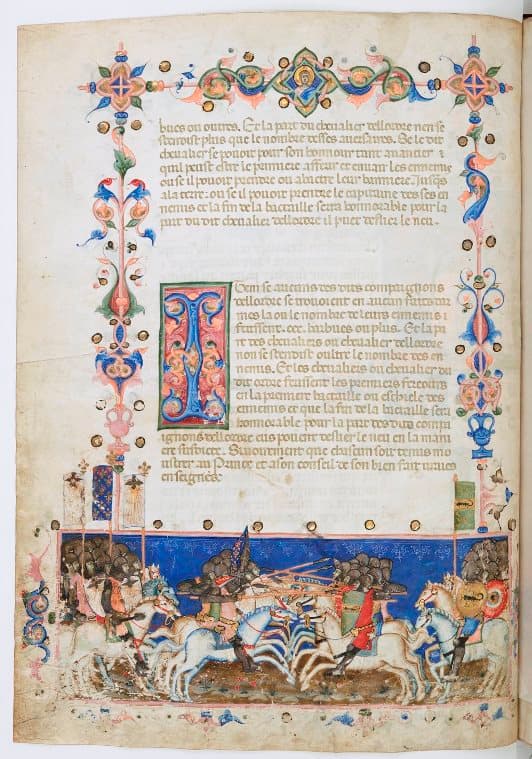 bues ou outres. Et la part du chevalier dellordre nen se
stendist plus que le nombre desses aversaires. Se le dit
chevalier se pouoit pour son honnour tant avancier
quil peust estre le premier a ferir et envair les ennemis
ou se il pouoit prendre ou abatre leur banniere. Jusques
a la terre. ou se il pouoit prendre le capitaine des ses en
nemis et la fin de la bactaille serra honnorable pour la
part du dit chevalier dellordre il puet deslier le neu.
Item se aucuns des dits compaignons
dellordre se trovoient en aucun fait dar
mes la ou le nombre de leurs ennemis
feussent. ccc. barbues ou plus. Et la pa
rt des chevaliers ou chevalier dellordre
non se stendist oultre le nombre des en
nemis. Et les chevaliers ou chevalier du
dit ordre feussent les premiers fereours
en la premiere bactaille ou eschiele des
ennemis et que la fin de la bactaille sera
honnorable pour la part des dits compa
ignons dellordre eus pouent deslier le neu en la mani
ere susdicte. Sauvement que chascun soit tenus mo
ustrer au Prince et a son conseil de son bien fait vraies
enseignes.